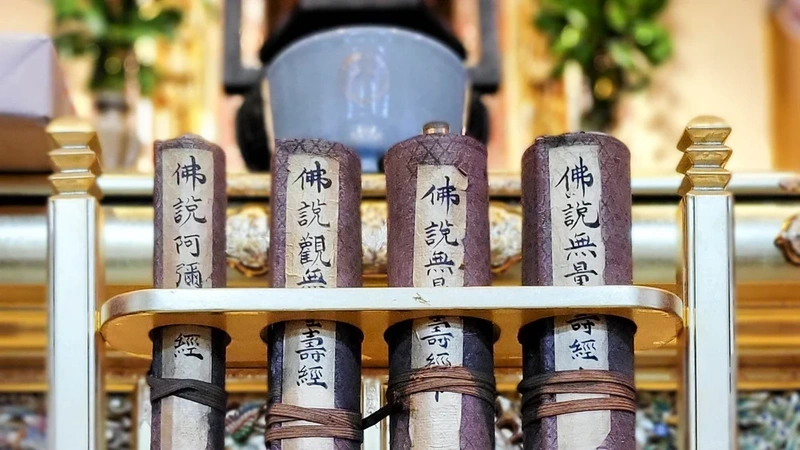 佛說無量壽經
佛說無量壽經
佛說觀無量壽經
佛說阿彌經